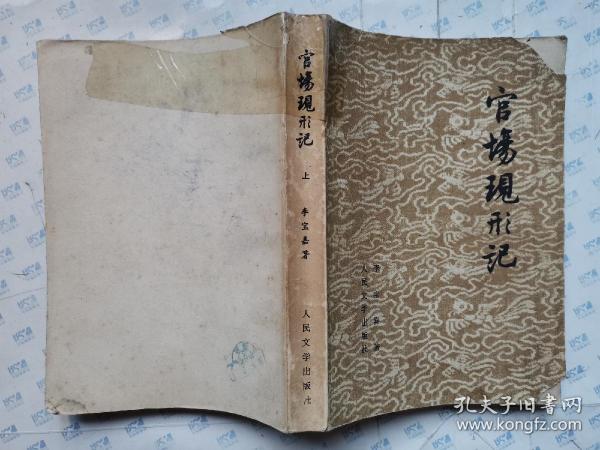 官場現形記
上
李宝嘉著
人民文学出版社
官場現形記
李宝嘉著
人民文学出版社
孔夫子旧书网
www.kongfz.com